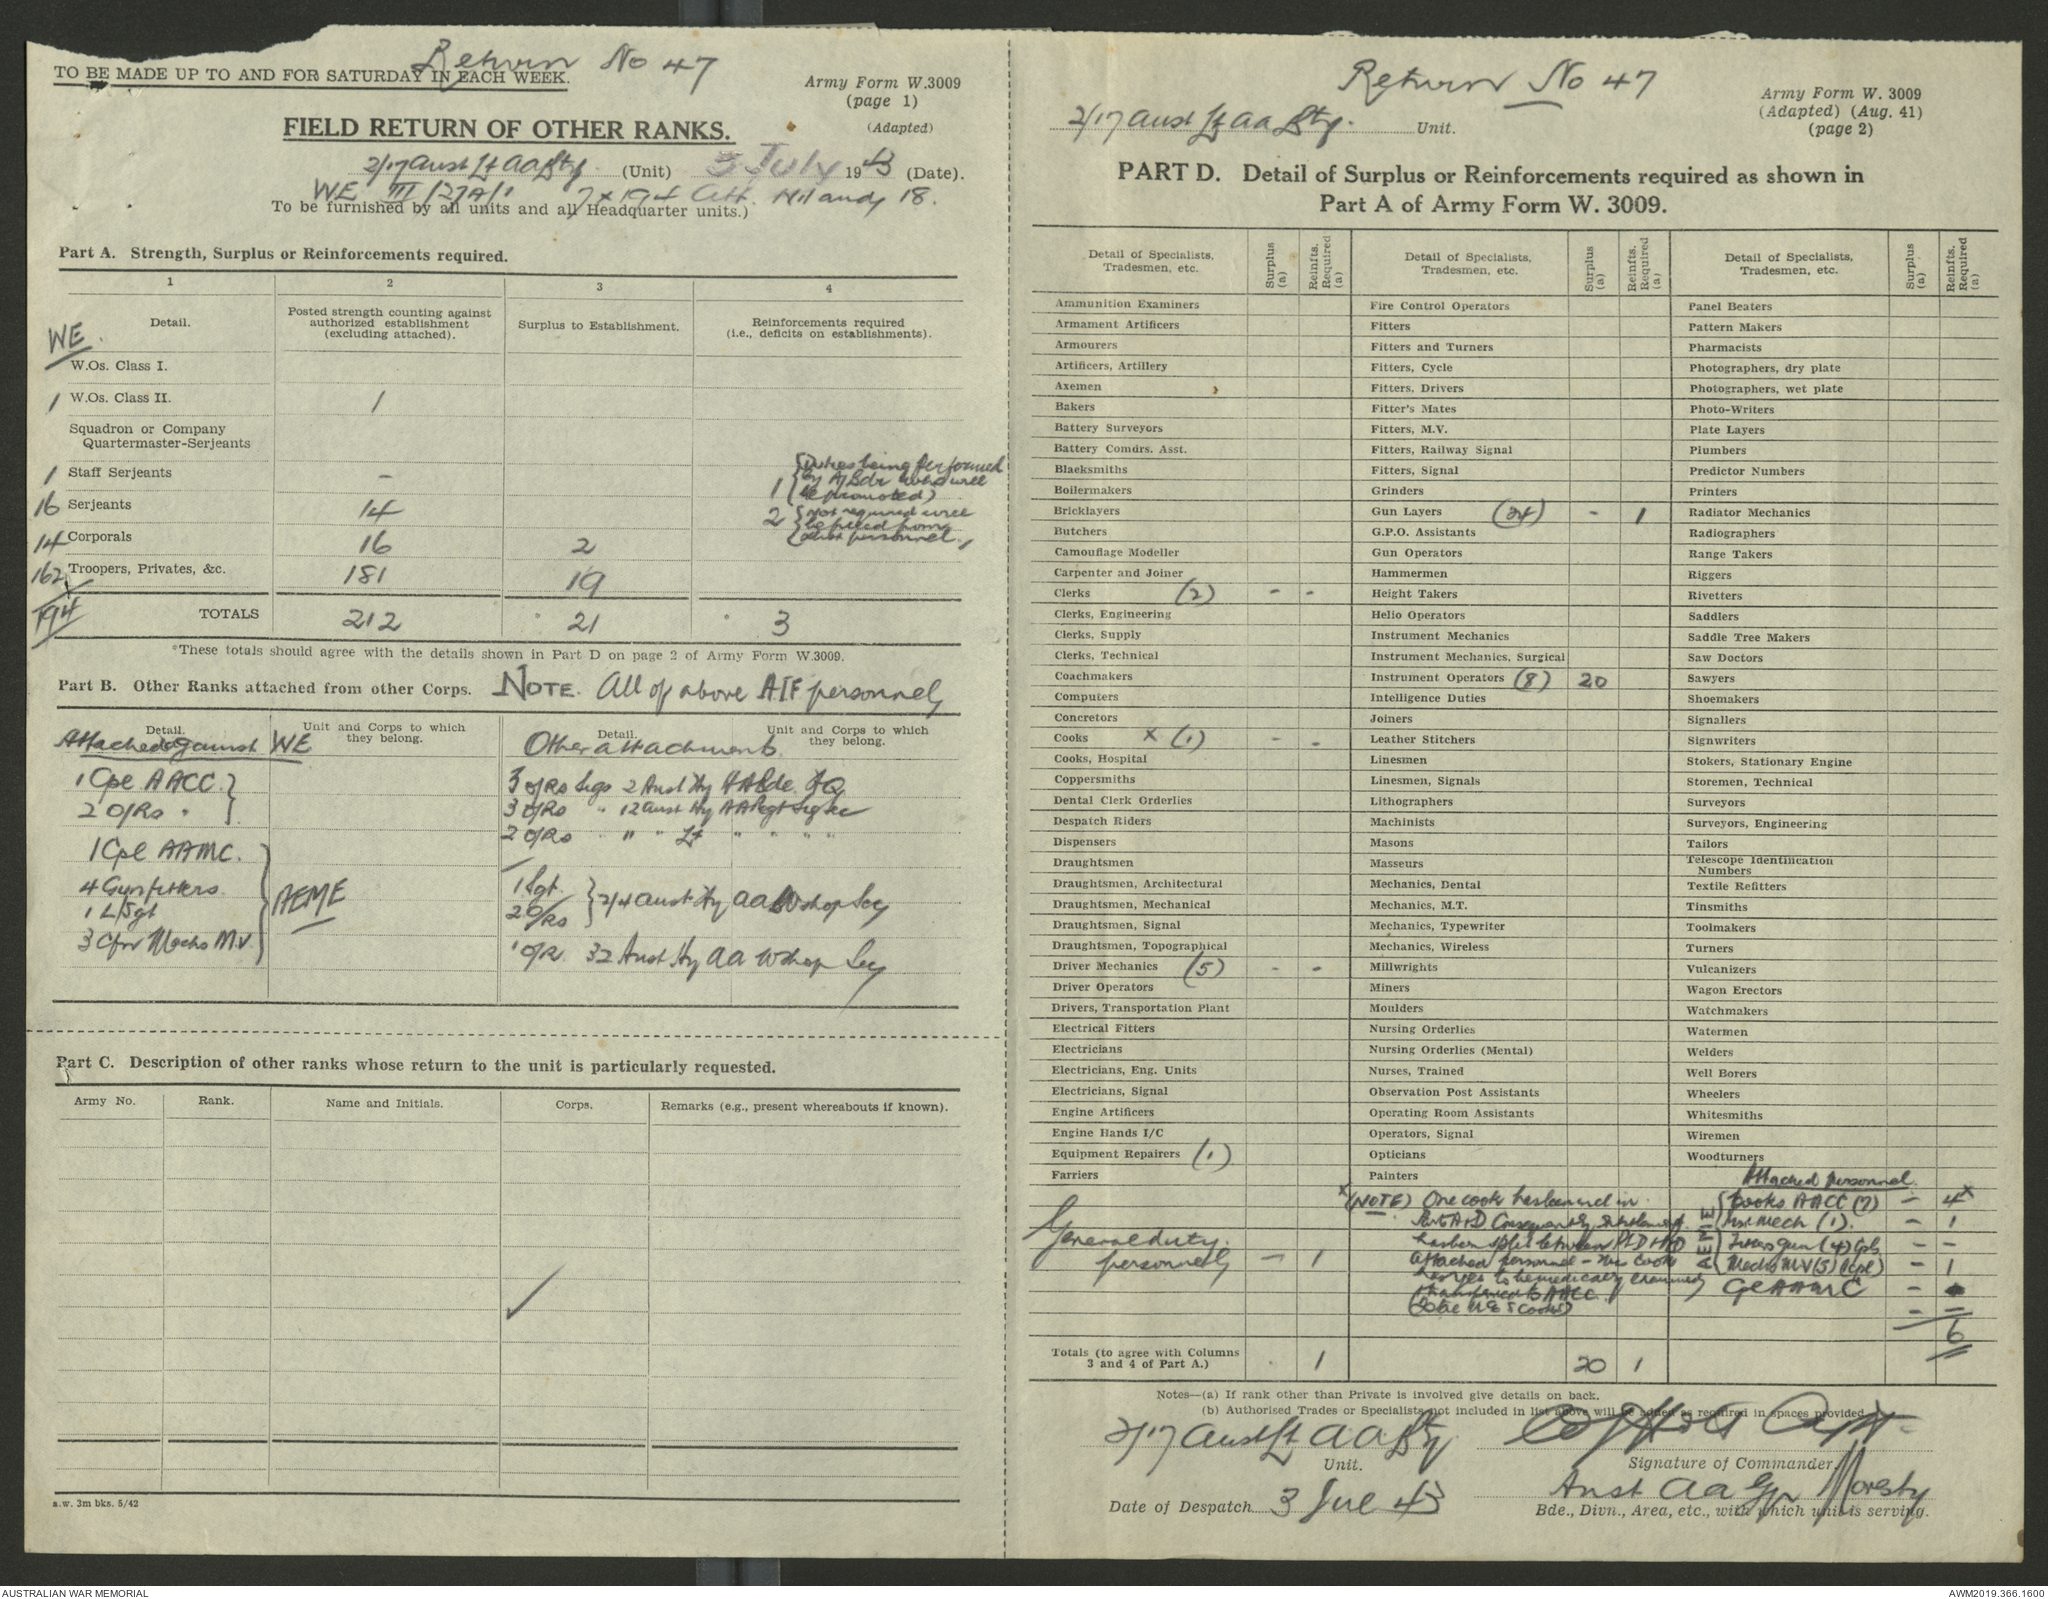 Return No 47
TO BE MADE UP TO AND FOR SATURDAY IN EACH WEEK.
Army Form W.3009
(page 1)
(Adapted)
FIELD RETURN OF OTHER RANKS.
2/17 Aust Lt AA Bty (Unit) 3 July 1943 (Date).
WE III /27A/1 7 x 194 Att. Nil and 18.
To be furnished by all units and all Headquarter units.)
Part A. Strength, Surplus or Reinforcements required.
1 2 3 4
Detail.
Posted strength counting against
authorized establishment
(excluding attached).
Surplus to Establishment.
Reinforcements required
(i.e., deficits on establishments).
WE.
W.Os. Class I.
1 W.Os. Class II. 1
Squadron or Company
Quartermaster-Serjeants
1 Staff Serjeants - 1 (Duties being performed
by A/Bdr who will
be promoted)
16 Serjeants 14 2 (Not required will
be filled from
other personnel.
14 Corporals 16 2
162 Troopers, Privates, &c. 181 19
194 TOTALS 212 21 3
*These totals should agree with the details shown in Part D on page 2 of Army Form W.3009.
Part B. Other Ranks attached from other Corps. NOTE. All of above AIF personnel
Detail.
Unit and Corps to which
they belong.
Detail.
Unit and Corps to which
they belong.
Attached against WE
1 Cpl AACC.
2 O/Rs "
1 Cpl AAMC.
4 Gunfitters.
1 L/Sgt
3 Cfn Mechs M.V.
AEME
Other attachments.
3 O/Rs Sigs 2 Aust Hy AA Bde HQ
3 O/Rs " 12 Aust Hy AA Regt Sig Sec
2 O/Rs " " " Lt " " " "
1 Sgt.
2 O/Rs
2/4 Aust Hy AA Wshop Sec
1 O/R. 32 Aust Hy AA Wshop Sec
Part C. Description of other ranks whose return to the unit is particularly requested.
Army No. Rank. Name and Initials. Corps. Remarks (e.g., present whereabouts if known).
a.w. 3m bks. 5/42
Return No 47
2/17 Aust Lt AA Bty. Unit.
Army Form W. 3009
(Adapted) (Aug. 41)
(page 2)
PART D. Detail of Surplus or Reinforcements required as shown in
Part A of Army Form W. 3009.
Detail of Specialists,
Tradesmen, etc.
Surplus
(a)
Reinfts.
Required
(a)
Ammunition Examiners
Armament Artificers
Armourers
Artificers, Artillery
Axemen
Bakers
Battery Surveyors
Battery Comdrs. Asst.
Blacksmiths
Boilermakers
Bricklayers
Butchers
Camouflage Modeller
Carpenter and Joiner
Clerks (2) - -
Clerks, Engineering
Clerks, Supply
Clerks, Technical
Coachmakers
Computers
Concretors
Cooks x (1) - -
Cooks, Hospital
Coppersmiths
Dental Clerk Orderlies
Despatch Riders
Dispensers
Draughtsmen
Draughtsmen, Architectural
Draughtsmen, Mechanical
Draughtsmen, Signal
Draughtsmen, Topographical
Driver Mechanics (5) - -
Driver Operators
Drivers, Transportation Plant
Electrical Fitters
Electricians
Electricians, Eng. Units
Electricians, Signal
Engine Artificers
Engine Hands I/C
Equipment Repairers (1)
Farriers
General duty
personnel - 1
Totals (to agree with Columns
3 and 4 of Part A.) 1
Detail of Specialists,
Tradesmen, etc.
Surplus
(a)
Reinfts.
Required
(a)
Fire Control Operators
Fitters
Fitters and Turners
Fitters, Cycle
Fitters, Drivers
Fitter's Mates
Fitters, M.V.
Fitters, Railway Signal
Fitters, Signal
Grinders
Gun Layers (24) - 1
G.P.O. Assistants
Gun Operators
Hammermen
Height Takers
Helio Operators
Instrument Mechanics
Instrument Mechanics, Surgical
Instrument Operators (8) 20
Intelligence Duties
Joiners
Leather Stitchers
Linesmen
Linesmen, Signals
Lithographers
Machinists
Masons
Masseurs
Mechanics, Dental
Mechanics, M.T.
Mechanics, Typewriter
Mechanics, Wireless
Millwrights
Miners
Moulders
Nursing Orderlies
Nursing Orderlies (Mental)
Nurses, Trained
Observation Post Assistants
Operating Room Assistants
Operators, Signal
Opticians
Painters
x (NOTE) One cook has been incl in
Part A & D Consequently entitlement
has been split between Pt D & HQ
attached personnel - This Cook
has yet to be medically examined
transferred to AACC.
20 1
Detail of Specialists,
Tradesmen, etc.
Surplus
(a)
Reinfts.
Required
(a)
Panel Beaters
Pattern Makers
Pharmacists
Photographers, dry plate
Photographers, wet plate
Photo-Writers
Plate Layers
Plumbers
Predictor Numbers
Printers
Radiator Mechanics
Radiographers
Range Takers
Riggers
Rivetters
Saddlers
Saddle Tree Makers
Saw Doctors
Sawyers
Shoemakers
Signallers
Signwriters
Stokers, Stationary Engine
Storemen, Technical
Surveyors
Surveyors, Engineering
Tailors
Telescope Identification
Numbers
Textile Refitters
Tinsmiths
Toolmakers
Turners
Vulcanizers
Wagon Erectors
Watchmakers
Watermen
Welders
Well Borers
Wheelers
Whitesmiths
Wiremen
Woodturners
Attached Personnel.
Cooks AACC (7) - 4x
AEME
Inst Mech (1). - 1
Fitters Gun (4) Cpls - -
Mechs MV (5) (1 Cpl) - 1
Cpl AAMC -
- -
6
Notes—(a) If rank other than Private is involved give details on back.
(b) Authorised Trades or Specialists not included in list above will be added as required in spaces provided.
2/17 Aust Lt AA Bty
Unit.
Capt
Signature of Commander.
Date of Despatch 3 Jul 43
Aust AA Gp Moresby
Bde., Divn., Area, etc., with which unit is serving.
AUSTRALIAN WAR MEMORIAL
AWM2019.366.1600